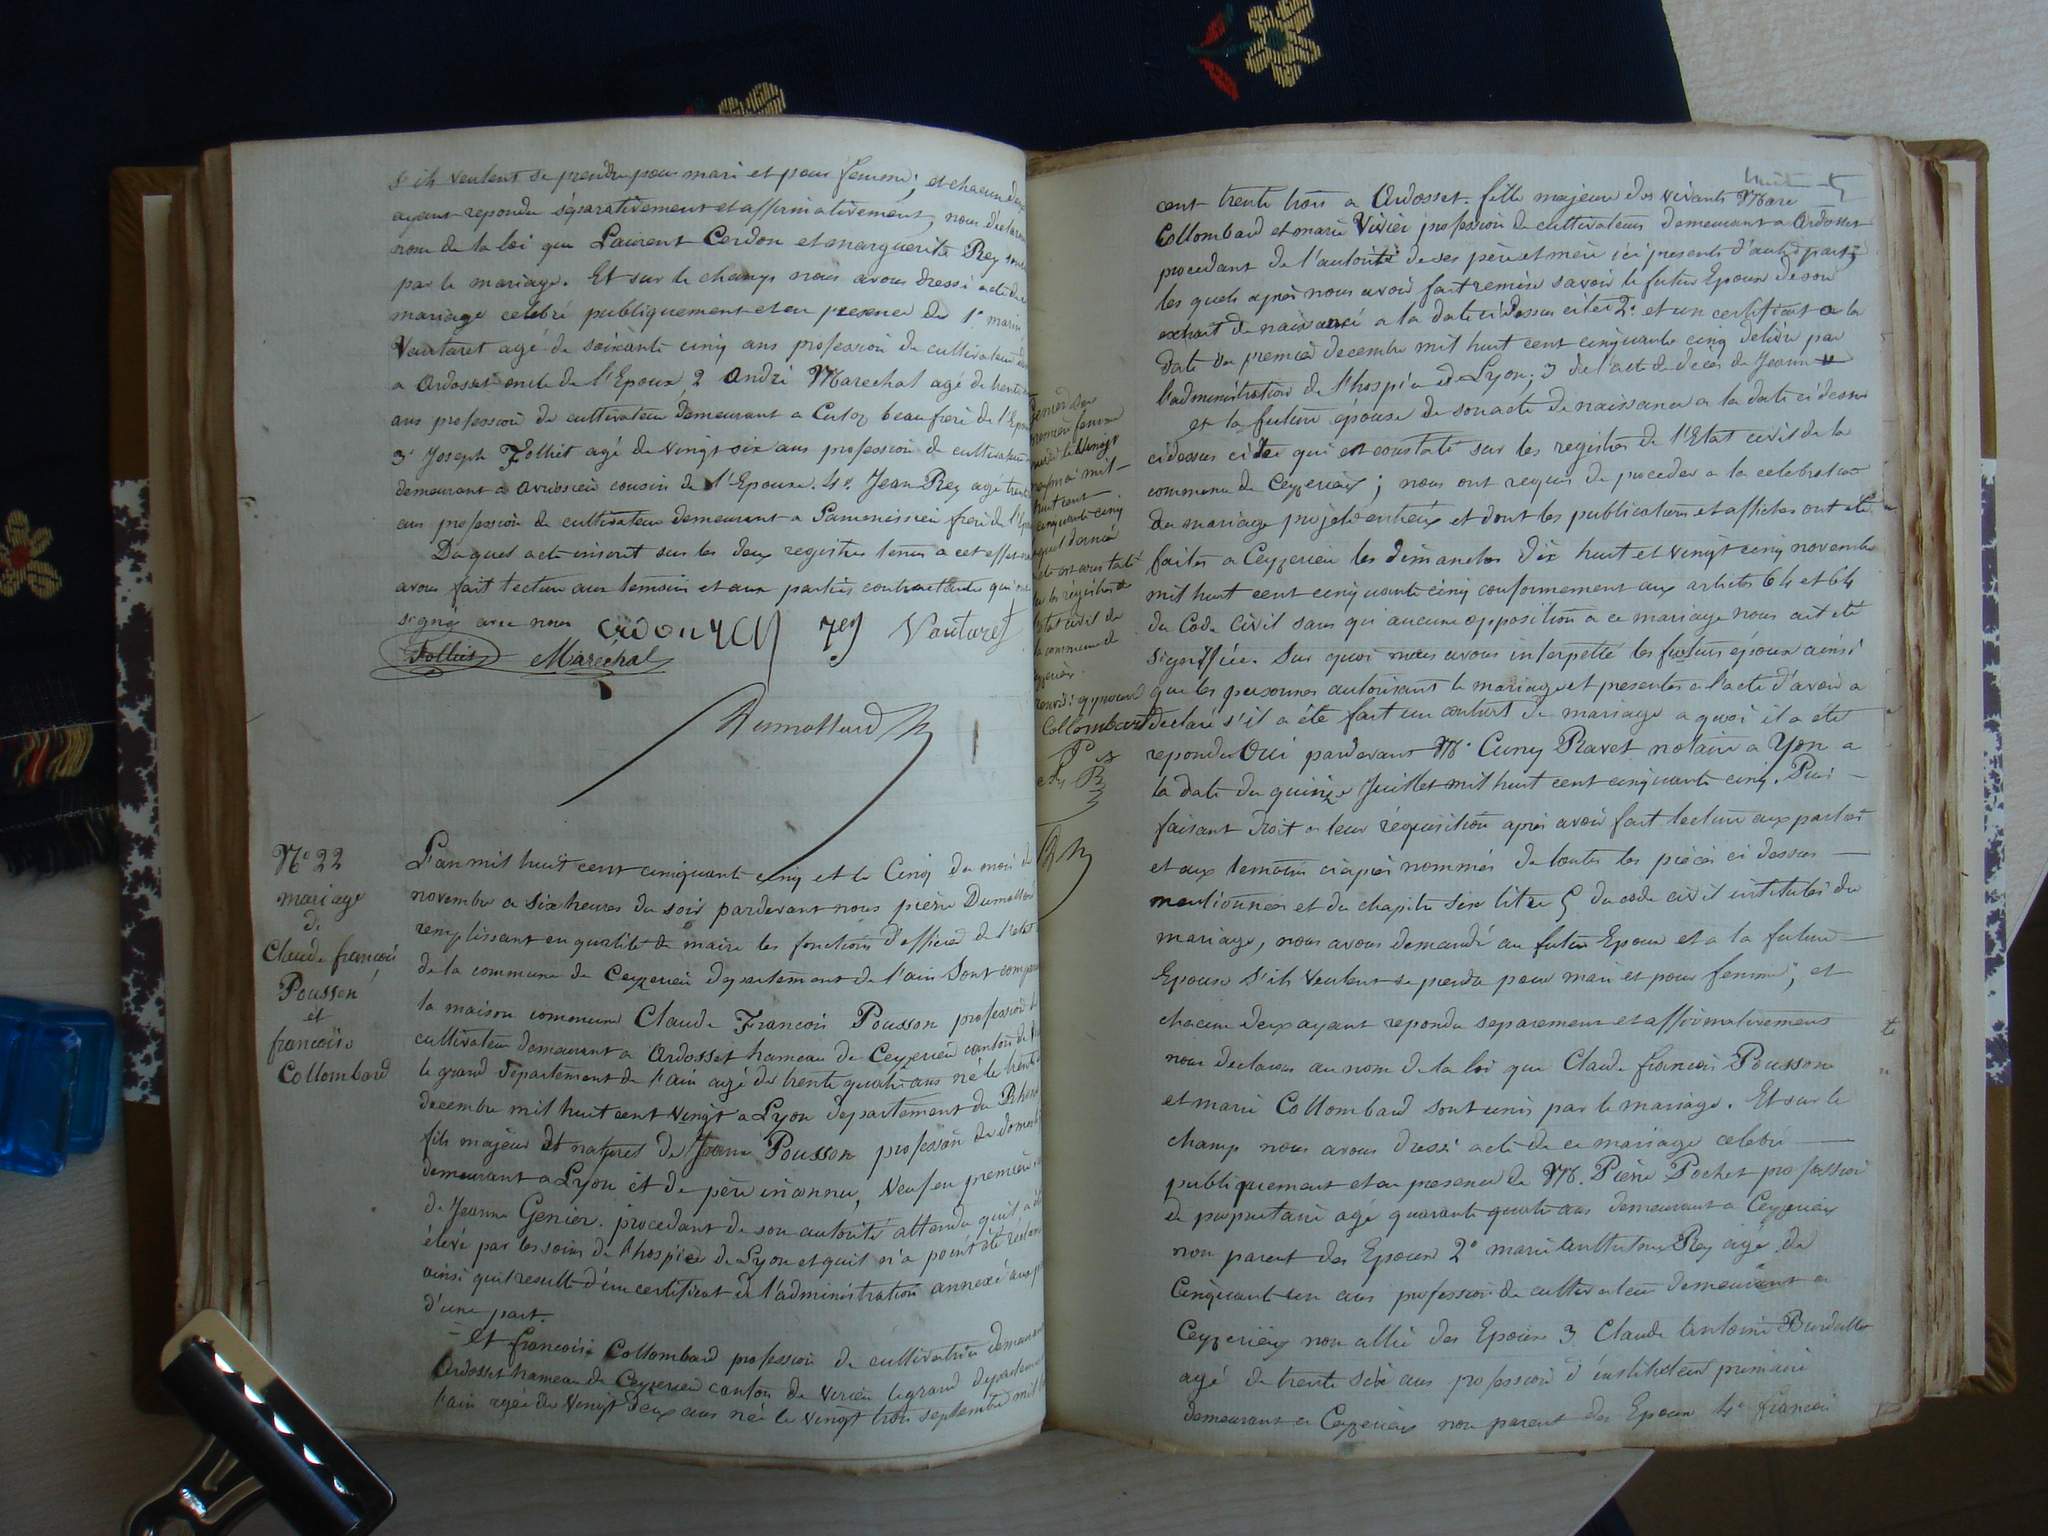 s'ils veulent se prendre pour mari et pour femme; et chacun d'eux
ayant repondu séparativement et affirmativement, nous declarons
nom de la loi que Laurent Cerdon et marguerite Rey sont
par le mariage. Et sur le champ nous avons dressé acte de
mariage celebré publiquement et en presence de 1º. marin
Vautaret agé de soixante cinq ans profession de cultivateur
a Ardosset oncle de l'Epoux 2 André Marechal agé de trente
ans profession de cultivateur demeurant a Culoz beaufrere de l'Epoux
3º Joseph Folliet agé de vingt six ans profession de cultivateur
demeurant a cousin de l'Epouse. 4º. Jean Rey agé trente
ans profession de cultivateur demeurant a frere de l'Epouse
Duquel acte inscrit sur les deux registres tenus a cet effet
avons fait lecture aux temoins et aux parties contractantes qui ont
signé avec nous Rey Vautaret
Folliet Maréchal
Dumollard
Nº 22
mariage
de
Claude francois
Pousson
et
francoise
Collombard
L'an mil huit cent cinquante cinq et le Cinq du mois de
novembre a six heures du soir pardevant nous pierre Dumollard
remplissant en qualité de maire les fonctions d'officier de l'etat
de la commune de Ceyzerieu departement de l'ain Sont comparu
la maison commune Claude Francois Pousson profession de
cultivateur demeurant a Ardosset hameau de Ceyzerieu canton de
le grand departement de l'ain agé de trente quatre ans né le trente
decembre mil huit cent vingt a Lyon departement du Rhone
fils majeur et naturel de Jeanne Pousson profession de domestique
demeurant a Lyon et de père inconnu, Veuf en première
de Jeanne Genier. procedant de son autorité attendu qu'il a été
élevé par les soins de l'hospice de Lyon et qu'il n'a point été
ainsi qu'il resulte d'un certificat de l'administration annexé aux
d'une part.
et francoise Collombard profession de cultivatrice demeurant
Ardosset hameau de Ceyzerieu canton de virieu le grand departement
l'ain agée de vingt deux ans née le vingt trois septembre mil
premiere femme
vingt
mil
huit cent
cinquante cinq
est constaté
les registres de
l'etat civil de
la commune de
Collombard
cent trente trois a Ardosset. fille majeure des vivants Marc
Collombard et marie Vivier profession de cultivateurs demeurant a Ardosset
procedant de l'autorité de ses père et mère ici presents d'autre part;
les quels après nous avoir fait remise savoir le futur Epoux de son
extrait de naissance a la date ci dessus citée 2º et un certificat a la
date du premier decembre mil huit cent cinquante cinq delivré par
l'administration de l'hospice de Lyon; 3 de l'acte de deces de Jeanne
et la future épouse de son acte de naissance a la date ci dessus
ci dessus citée qui est constaté sur les registres de l'Etat civil de la
commune de Ceyzerieu; nous ont requis de proceder a la celebration
du mariage projeté entr'eux et dont les publications et affiches ont été
faites a Ceyzerieu les dimanches dix huit et vingt cinq novembre
mil huit cent cinquante cinq conformement aux articles 64 et 64
du Code Civil sans qu'aucune opposition a ce mariage nous ait été
signifiée. Sur quoi nous avons interpellé les futurs époux ainsi
que les personnes autorisant le mariage et presentes a l'acte d'avoir a
declaré s'il a été fait un contrat de mariage a quoi il a été
repondu Oui pardevant Me Cuny Ravet notaire a Yon a
la date du quinze Juillet mil huit cent cinquante cinq. Puis
faisant droit a leur réquisition après avoir fait lecture aux parties
et aux temoins ciaprès nommés de toutes les pièces ci dessus
mentionnées et du chapitre six titre 5 du code civil intitulé du
mariage, nous avons demandé au futur Epoux et a la future
Epouse S'ils veulent se prendre pour mari et pour femme; et
chacun d'eux ayant repondu separement et affirmativement
nous declarons au nom de la loi que Claude francois Pousson
et marie Collombard sont unis par le mariage. Et sur le
champ nous avons dressé acte de ce mariage celebré
publiquement et en presence de M. Pierre Pochet profession
de proprietaire agé quarante quatre ans demeurant a Ceyzerieu
non parent des Epoux 2º marie Anthelme Rey agé de
Cinquante un ans profession de cultivateur demeurant a
Ceyzerieu non allié des Epoux 3 Claude Antoine Burdallet
agé de trente six ans profession d'instituteur primaire
demeurant a Ceyzerieu non parent des Epoux 4º francois